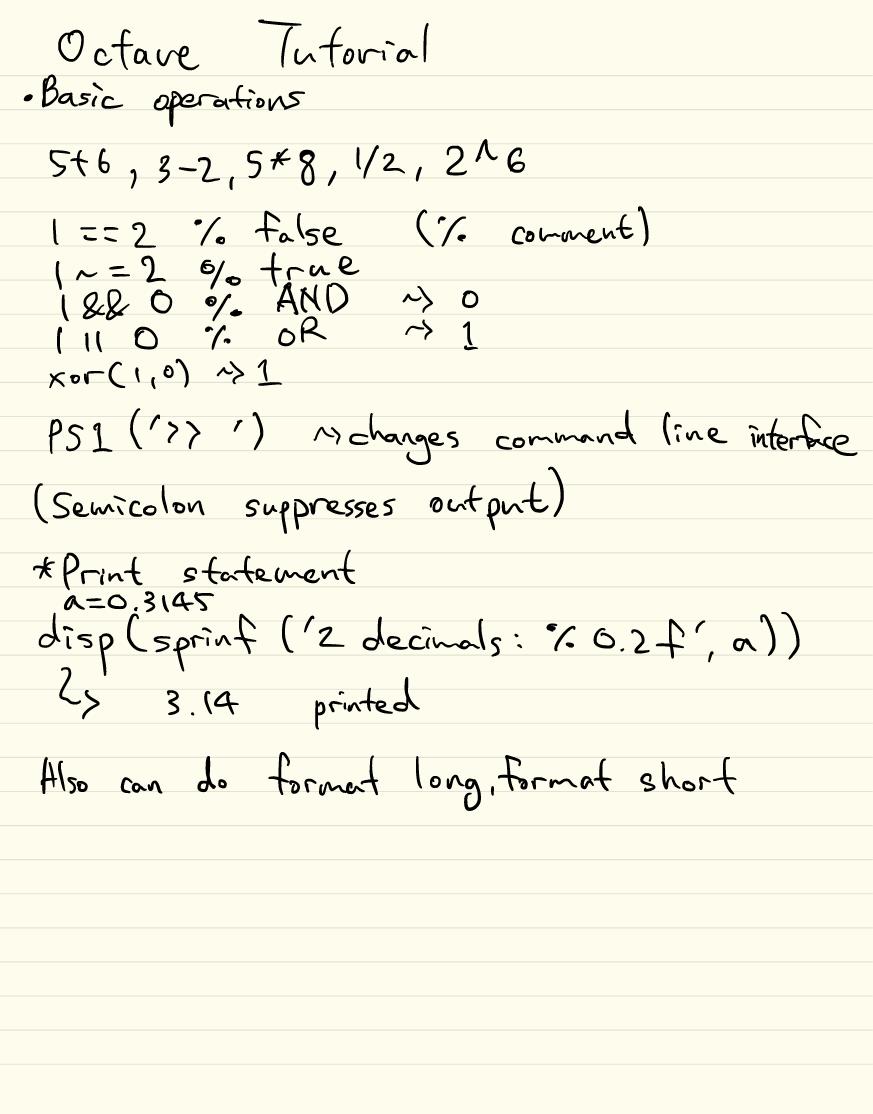 Octave Tutorial
• Basic operations
5+6, 3-2, 5*8, 1/2, 2^6
1 == 2 % false (% comment)
1 ~= 2 % true
1 && 0 % AND ⇝ 0
1 || 0 % OR ⇝ 1
xor(1,0) ⇝ 1
PS1('>> ') ⇝ changes command line interface
(Semicolon suppresses output)
* Print statement
a=0.3145
disp(sprinf('2 decimals: %0.2f', a))
↳ 3.14 printed
Also can do format long, format short